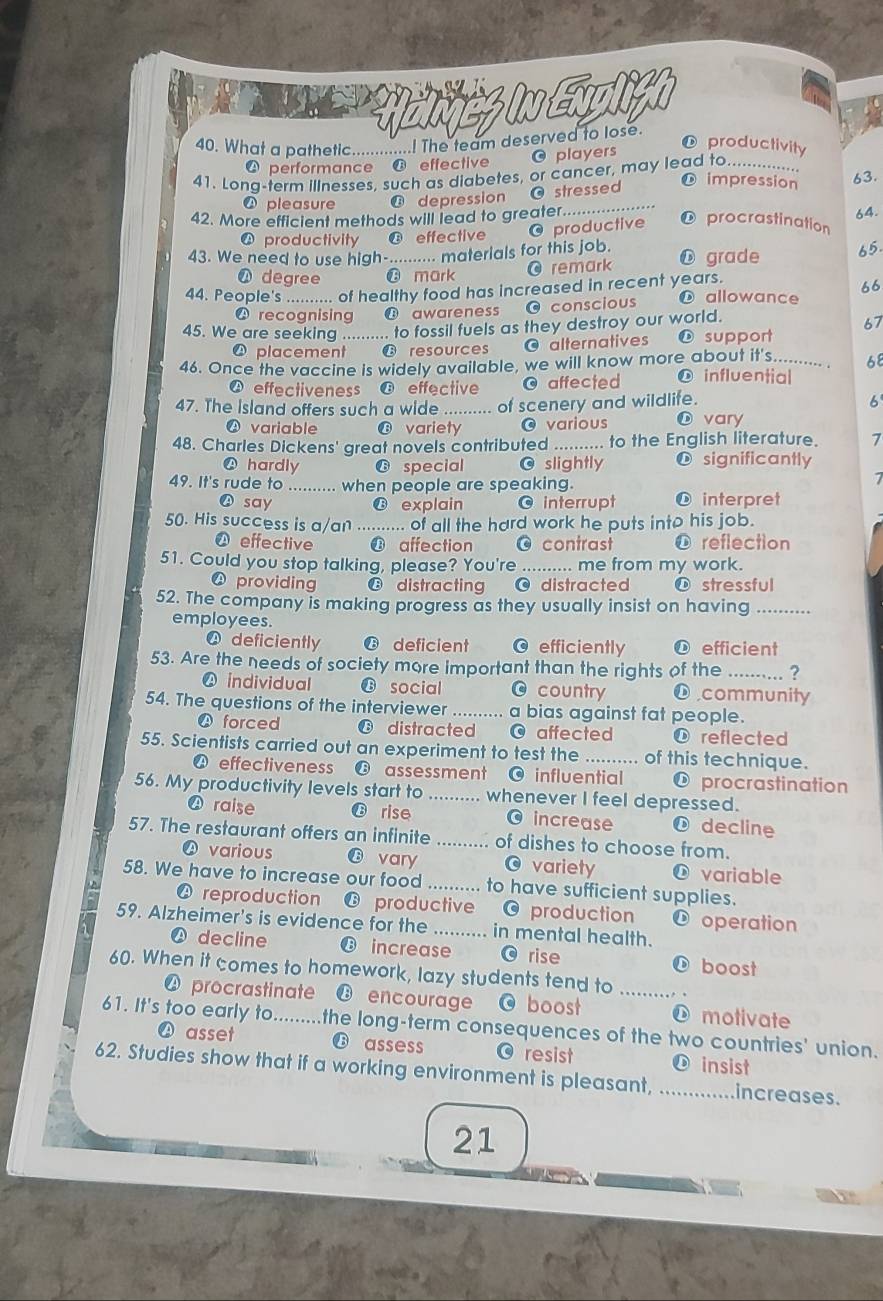 Holmes In English
40. What a pathetic.............! The team deserved to lose.
A performance B effective C players D productivity
41. Long-term illnesses, such as diabetes, or cancer, may lead to.............
A pleasure B depression C stressed D impression
42. More efficient methods will lead to greater....................
A productivity B effective C productive D procrastination
43. We need to use high-.......... materials for this job.
A degree B mark C remark D grade
44. People's .......... of healthy food has increased in recent years.
A recognising B awareness C conscious D allowance
45. We are seeking .......... to fossil fuels as they destroy our world.
A placement B resources C alternatives D support
46. Once the vaccine is widely available, we will know more about it's........... .
A effectiveness B effective C affected D influential
47. The island offers such a wide .......... of scenery and wildlife.
A variable B variety C various D vary
48. Charles Dickens' great novels contributed .......... to the English literature.
A hardly B special C slightly D significantly
49. It's rude to .......... when people are speaking.
A say B explain C interrupt D interpret
50. His success is a/an .......... of all the hard work he puts into his job.
A effective B affection C contrast D reflection
51. Could you stop talking, please? You're .......... me from my work.
A providing B distracting C distracted D stressful
52. The company is making progress as they usually insist on having ..........
employees.
A deficiently B deficient C efficiently D efficient
53. Are the needs of society more important than the rights of the .......... ?
A individual B social C country D community
54. The questions of the interviewer .......... a bias against fat people.
A forced B distracted C affected D reflected
55. Scientists carried out an experiment to test the .......... of this technique.
A effectiveness B assessment C influential D procrastination
56. My productivity levels start to .......... whenever I feel depressed.
A raise B rise C increase D decline
57. The restaurant offers an infinite .......... of dishes to choose from.
A various B vary C variety D variable
58. We have to increase our food .......... to have sufficient supplies.
A reproduction B productive C production D operation
59. Alzheimer's is evidence for the .......... in mental health.
A decline B increase C rise D boost
60. When it comes to homework, lazy students tend to .......... .
A procrastinate B encourage C boost D motivate
61. It's too early to.........the long-term consequences of the two countries' union.
A asset B assess C resist D insist
62. Studies show that if a working environment is pleasant, .............increases.
21
63.
64.
65.
66
67